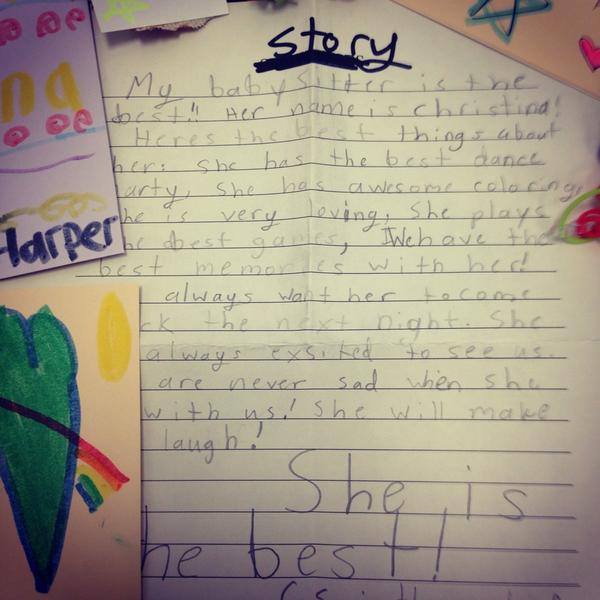 story
My babysitter is the
best!! Her name is christina!
Heres the best things about
her: she has the best dance
arty, She has awesome coloring,
he is very loving, She plays
he best games, We have the
best memories with her!
always want her to come
ck the next night. She
always exsited to see us.
are never sad when she
with us! She will make
laugh!
She is
he best!
na
Harper